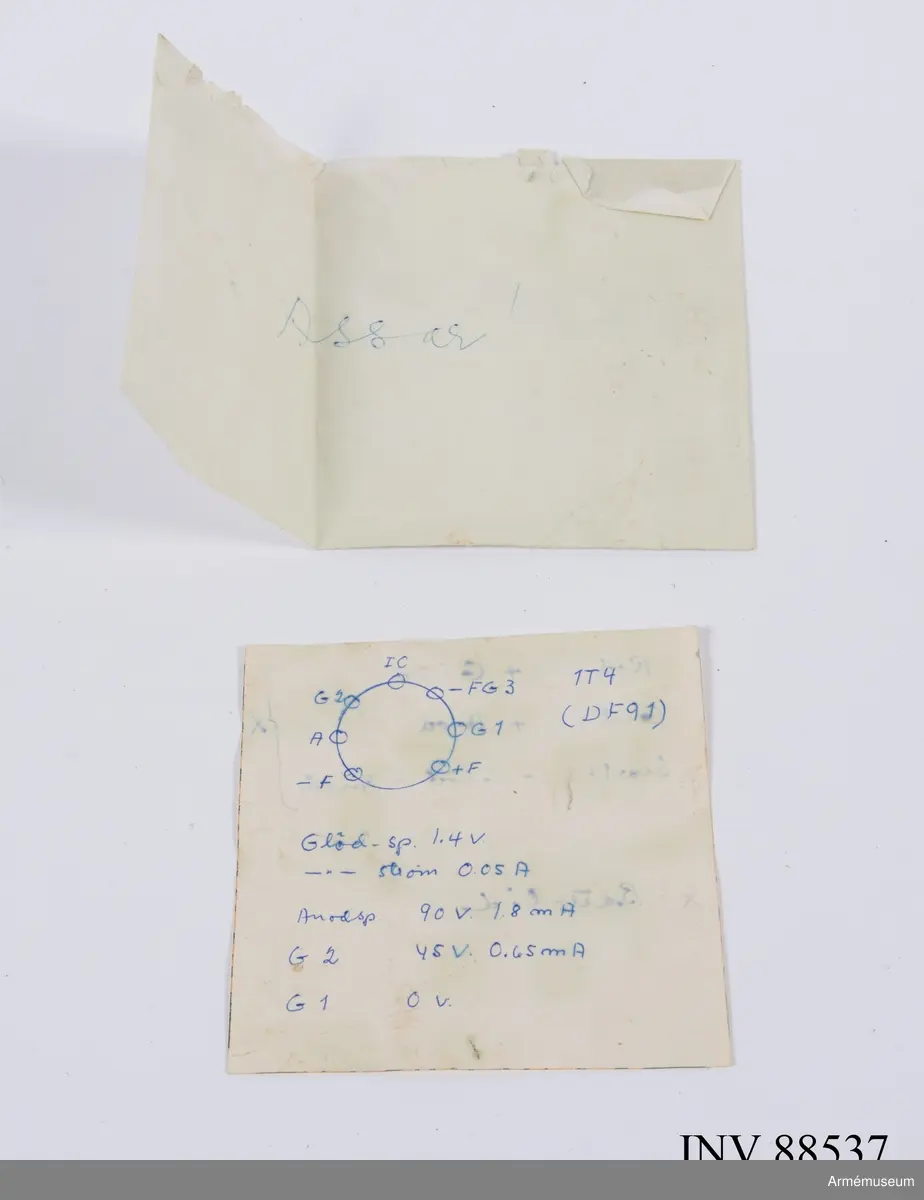 Assar
IC
G2 -FG3
A G1
-F +F
1T4
(DF91)
Glöd-sp. 1.4 V.
—"— ström 0.05 A
Anodsp 90 V. 1.8 mA
G 2 45 V. 0.65 mA
G 1 0 V.
INV 88537
Armémuseum